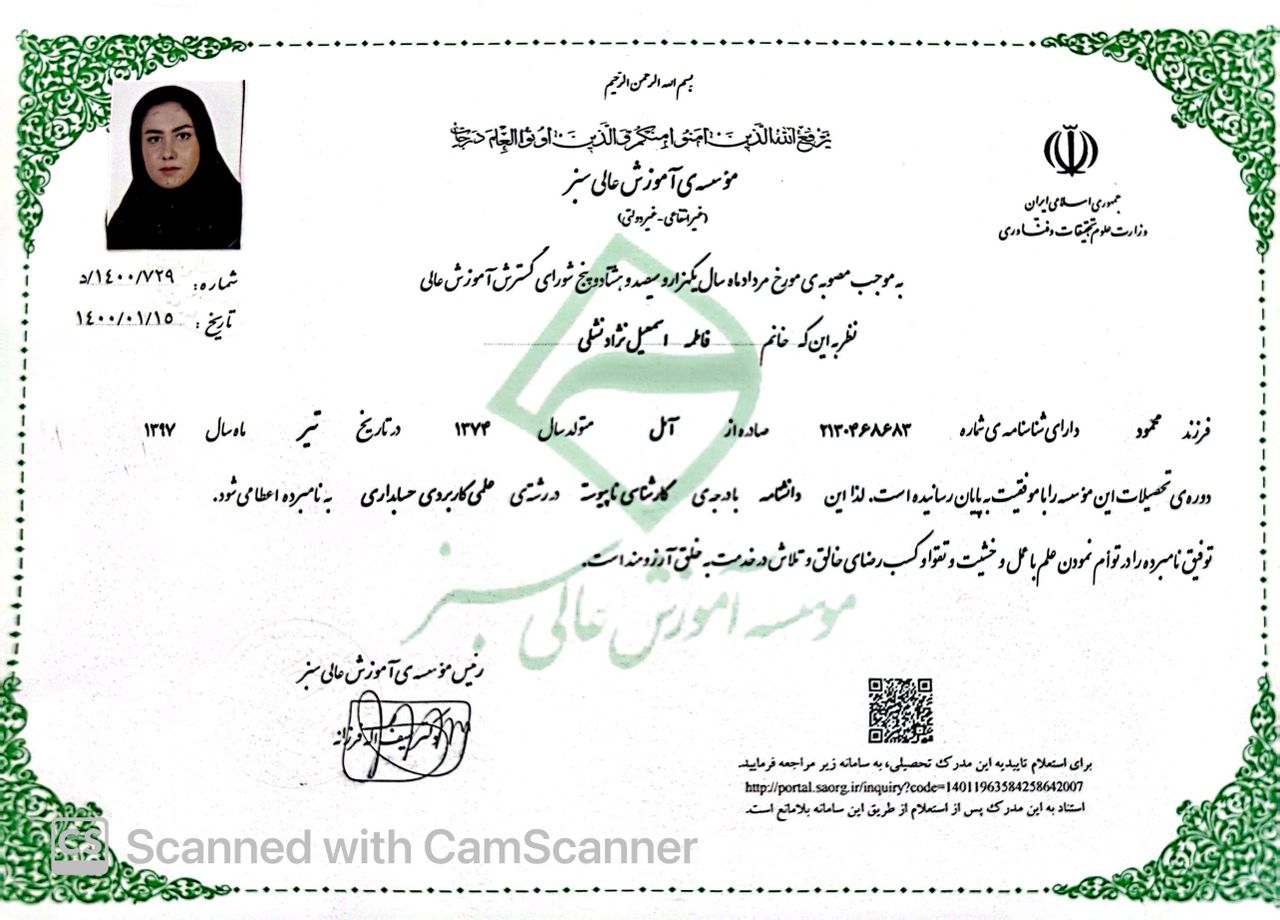 بسم الله الرحمن الرحیم
یرفع الله الذین امنوا منکم و الذین اوتوا العلم درجات
مؤسسه‌ی آموزش عالی سبز
(غیرانتفاعی-غیردولتی)
جمهوری اسلامی ایران
وزارت علوم تحقیقات و فناوری
شماره: ۱۴۰۰/۷۲۹/د
تاریخ: ۱۴۰۰/۰۱/۱۵
به موجب مصوبه‌ی مورخ مردادماه سال یکهزار و سیصد و هشتاد و پنج شورای گسترش آموزش عالی
نظر به این که خانم فاطمه اسمعیل نژاد نشلی
فرزند محمود دارای شناسنامه‌ی شماره ۲۱۳۰۴۶۸۶۸۳ صادره از آمل متولد سال ۱۳۷۴ در تاریخ تیر ماه سال ۱۳۹۷
دوره‌ی تحصیلات این مؤسسه را با موفقیت به پایان رسانیده است. لذا این دانشنامه با درجه‌ی کارشناسی ناپیوسته در رشته‌ی علمی کاربردی حسابداری به نامبرده اعطا می شود.
توفیق نامبرده را در توأم نمودن علم با عمل و خشیت و تقوا و کسب رضای خالق و تلاش در خدمت به خلق آرزومند است.
موسسه آموزش عالی سبز
رئیس مؤسسه‌ی آموزش عالی سبز
برای استعلام تاییدیه این مدرک تحصیلی، به سامانه زیر مراجعه فرمایید.
http://portal.saorg.ir/inquiry?code=14011963584258642007
استناد به این مدرک پس از استعلام از طریق این سامانه بلامانع است.
CS Scanned with CamScanner